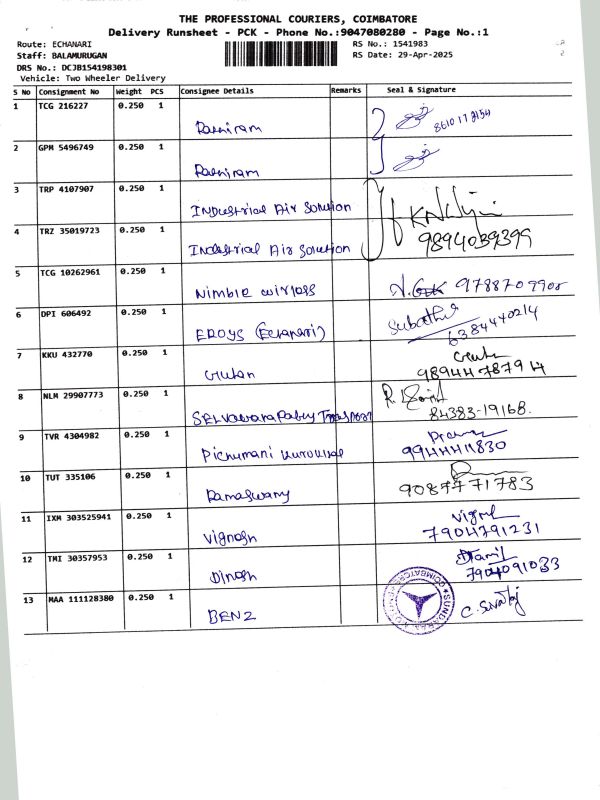 THE PROFESSIONAL COURIERS, COIMBATORE
Delivery Runsheet - PCK - Phone No.:9047080280 - Page No.:1
Route: ECHANARI RS No.: 1541983
Staff: BALAMURUGAN RS Date: 29-Apr-2025
DRS No.: DCJB154198301
Vehicle: Two Wheeler Delivery
S No Consignment No Weight PCS Consignee Details Remarks Seal & Signature
1 TCG 216227 0.250 1
2 GPM 5496749 0.250 1
3 TRP 4107907 0.250 1 Industrial Air Solution
4 TRZ 35019723 0.250 1 Industrial Air Solution 9894039399
5 TCG 10262961 0.250 1 Nimble wirless
6 DPI 606492 0.250 1 EROYS (Echanari) 6384440214
7 KKU 432770 0.250 1 9894478794
8 NLM 29907773 0.250 1 84383-19168.
9 TVR 4304982 0.250 1 9944411830
10 TUT 335106 0.250 1 Ramaswamy 9087771783
11 IXM 303525941 0.250 1 Vignesh 7904791231
12 TMI 30357953 0.250 1 Dinesh 7904091033
13 MAA 111128380 0.250 1 BENZ